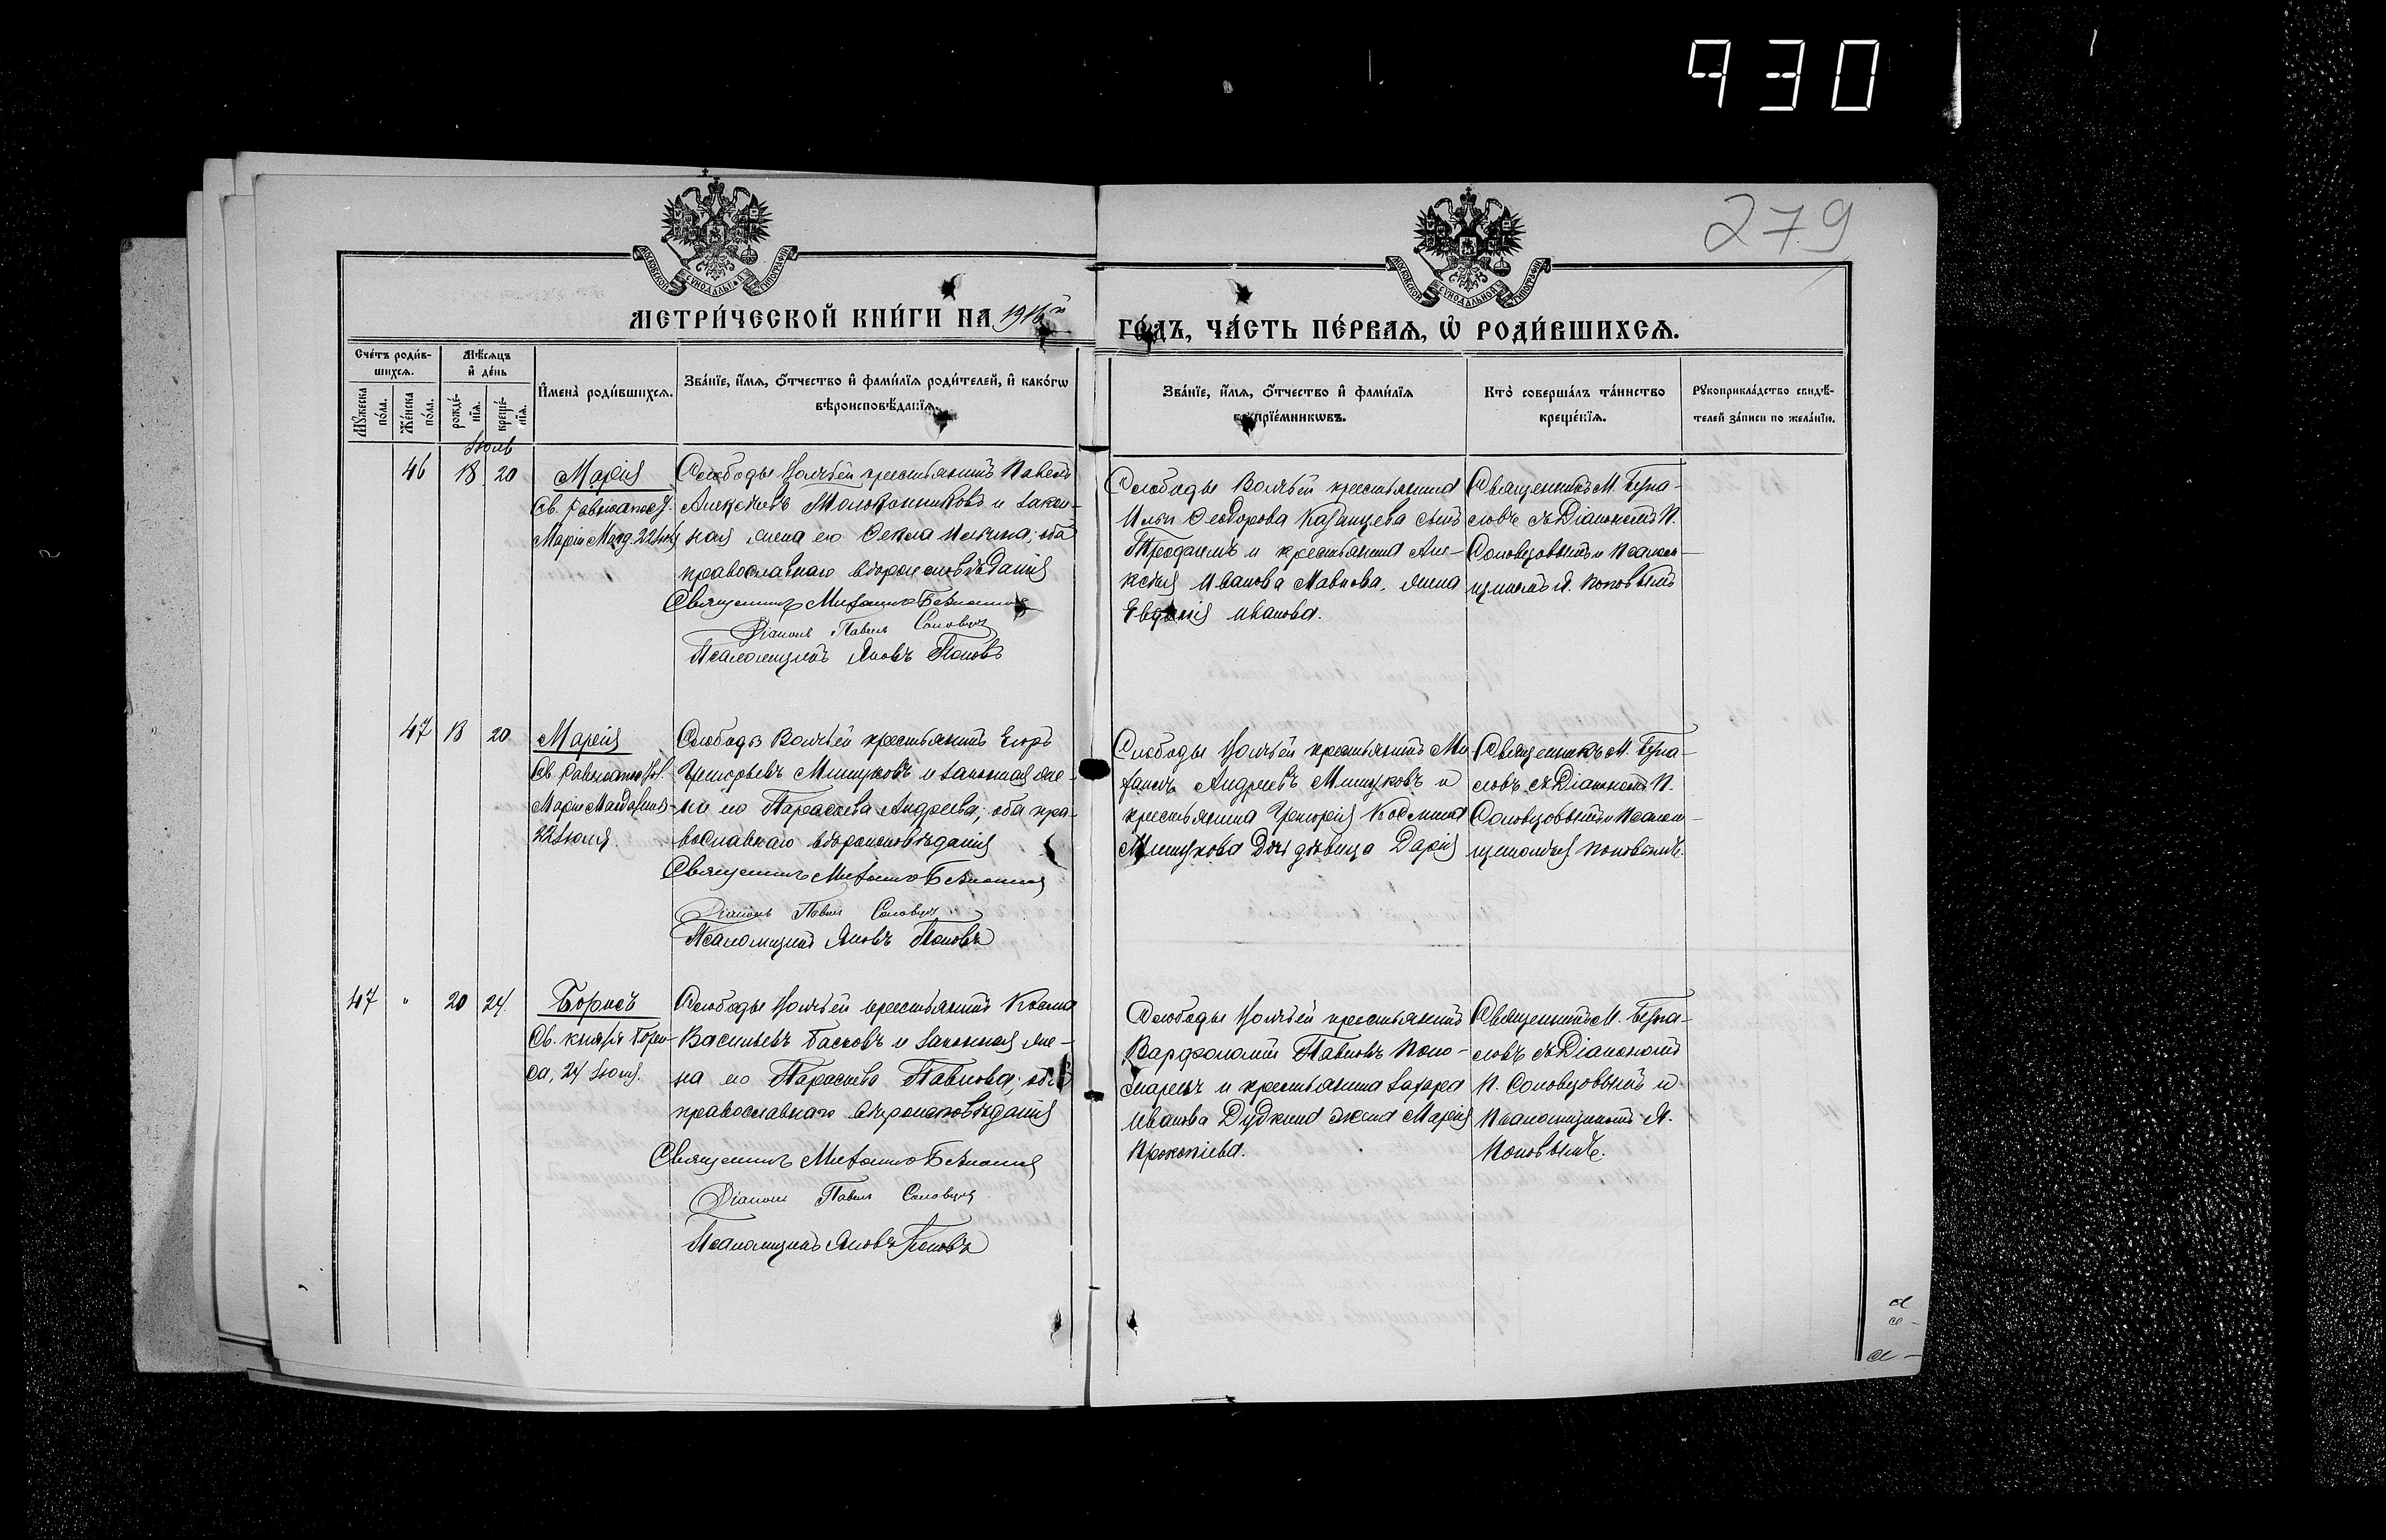 930
279
МЕТРИ́ЧЕСКОЙ КНИ́ГИ НА 1916й
ГО́ДЪ, ЧА́СТЬ ПЕ́РВАѦ, Ѽ РОДИ́ВШИХСѦ.
Сче́тъ роди́в-
шихсѧ.
Мѣ́сѧцъ
и҆ де́нь
Мꙋ́жеска
по́ла.
Же́нска
по́ла.
рожде́-
нїѧ.
креще́-
нїѧ.
И҆мена̀ роди́вшихсѧ.
Зва́нїе, и҆́мѧ, о҆́тчество и҆ фами́лїѧ роди́телей, и҆ како́гѡ
вѣроисповѣ́данїѧ.
Зва́нїе, и҆́мѧ, о҆́тчество и҆ фами́лїѧ
воспрїе́мникѡвъ.
Кто̀ соверша́лъ та́инство
креще́нїѧ.
Рꙋкоприкла́дство свидѣ́-
телей за́писи по жела́нїю.
Іюль
46 18 20 Марія
Св. равноапос.
Маріи Магд. 22 Іюля
Слободы Волчьей крестьянинъ Павелъ
Алексѣевъ и закон-
ная жена его Ѳекла Ильина; оба
православнаго вѣроисповѣданія
Священникъ Митрофанъ
Діаконъ Павелъ Соловцовъ
Псаломщикъ Яковъ Поповъ
Слободы Волчьей крестьянина
Ильи Ѳеодорова Казанцева сынъ
и крестьянина Але-
ксѣя Иванова жена
Евдокія Иванова.
Священникъ М.
съ Діакономъ П.
Соловцовымъ и Псалом-
щикомъ Я. Поповымъ
47 18 20 Марія
Св. равноапос.
Маріи Магдалины
22 Іюля.
Слободы Волчьей крестьянинъ Егоръ
Григорьевъ Мишуковъ и законная же-
на его Параскева Андреева; оба пра-
вославнаго вѣроисповѣданія
Священникъ Митрофанъ
Діаконъ Павелъ Соловцовъ
Псаломщикъ Яковъ Поповъ
Слободы Волчьей крестьянинъ Ми-
Андреевъ Мишуковъ и
крестьянина Григорія Космина
Мишукова дочь дѣвица Дарія
Священникъ М.
съ Діакономъ П.
Соловцовымъ и Псалом-
щикомъ Я Поповымъ.
47 " 20 24. Борисъ
Св. князя Бори-
са, 24 Іюля.
Слободы Волчьей крестьянинъ Косма
Васильевъ Басковъ и законная же-
на его Параскева Павлова; оба
православнаго вѣроисповѣданія
Священникъ Митрофанъ
Діаконъ Павелъ Соловцовъ
Псаломщикъ Яковъ Поповъ
Слободы Волчьей крестьянинъ
Варфоломей Павловъ Поно-
маревъ и крестьянина Захара
Иванова Дудкина жена Марія
Прокопіева.
Священникъ М.
съ Діакономъ
П. Соловцовымъ и
Псаломщикомъ Я.
Поповымъ.